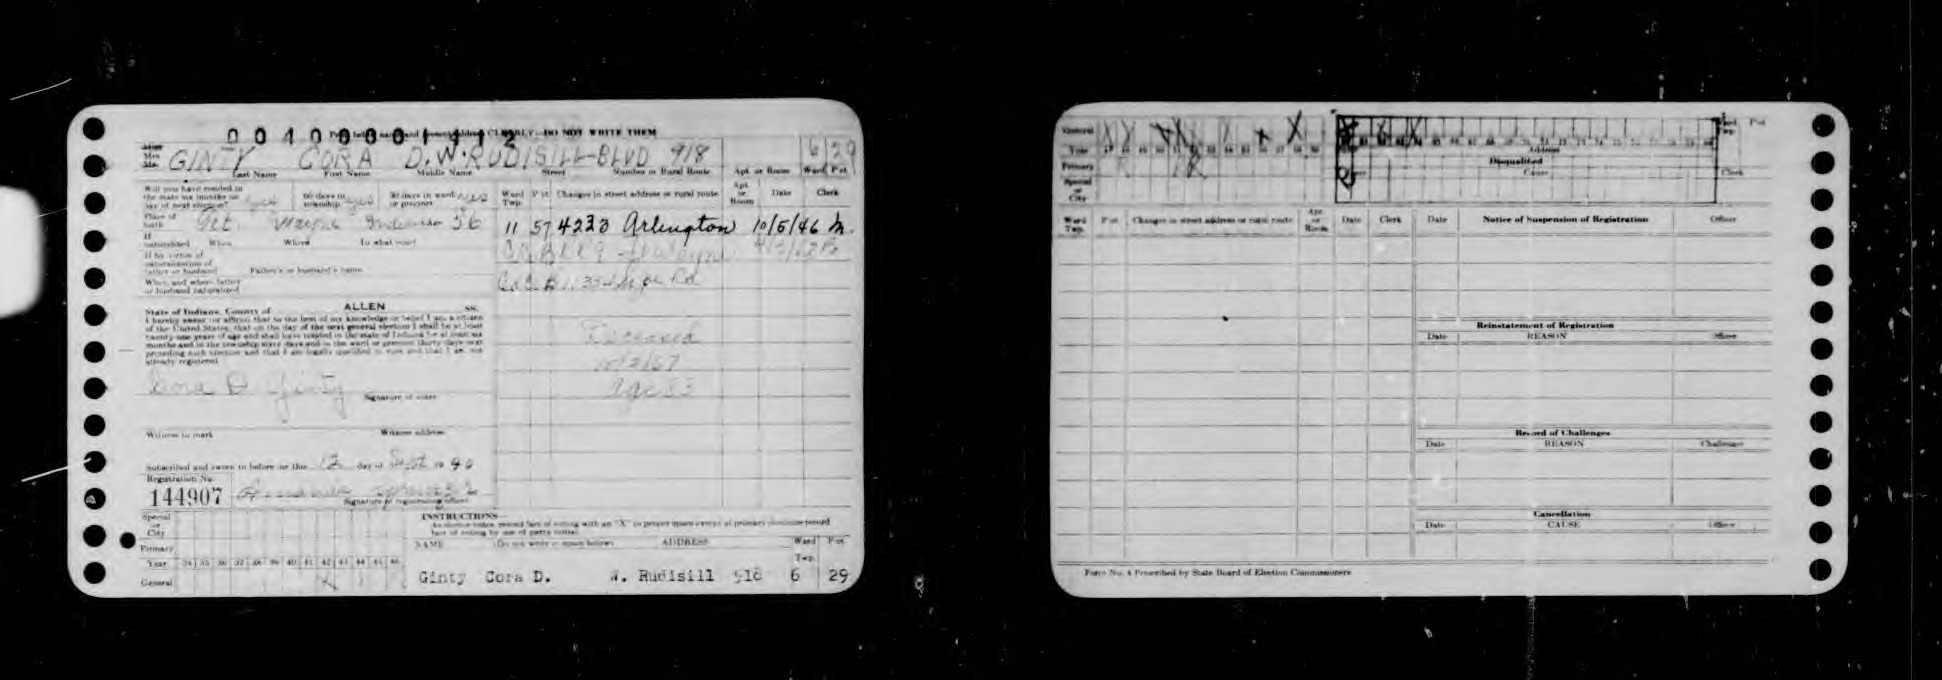 0 0 4 0 0 0 0 1 1 4 2
Print below name and present address CLEARLY—DO NOT WRITE THEM
Miss
Mrs. GINTY CORA D. W. RUDISILL-BLVD 918 6 29
Mr.
Last Name First Name Middle Name Street Number or Rural Route Apt. or Room Ward Pct.
Will you have resided in
the state six months on
day of next election? yes 60 days in township yes 30 days in ward or precinct yes
Ward Twp. Pct. Changes in street address or rural route Apt. or Room Date Clerk
Place of birth Ft. Wayne Indiana 56
11 57 4233 Arlington 10/5/46 M.
If naturalized When Where In what court
If by virtue of
naturalization of
father or husband Father's or husband's name
When and where father
or husband naturalized
State of Indiana, County of ALLEN SS.
I hereby swear (or affirm) that to the best of my knowledge or belief I am a citizen
of the United States, that on the day of the next general election I shall be at least
twenty-one years of age and shall have resided in the state of Indiana for at least six
months and in the township sixty days and in the ward or precinct thirty days next
preceding such election and that I am legally qualified to vote and that I am not
already registered.
Deceased
Age 83
Cora D. Ginty
Signature of voter
Witness to mark Witness address
Subscribed and sworn to before me this 12 day of Sept 19 40
Registration No.
144907
Signature of registering officer
Special or City
Primary
Year 34 35 36 37 38 39 40 41 42 43 44 45 46
General X
INSTRUCTIONS—
At election notes record fact of voting with an "X" in proper space except at primary elections record
fact of voting by use of party initial.
NAME (Do not write in space below) ADDRESS Ward Twp. Pct.
Ginty Cora D. W. Rudisill 918 6 29
General X X X X X X X
Year 47 48 49 50 51 52 53 54 55 56 57 58 59
Primary R R
Special or City
Ward Twp. Pct.
Address
Disqualified
Cause
Clerk
Ward Twp. Pct. Changes in street address or rural route Apt. or Room Date Clerk
Date Notice of Suspension of Registration Officer
Reinstatement of Registration
Date REASON Officer
Record of Challenges
Date REASON Challenger
Cancellation
Date CAUSE Officer
Form No. 4 Prescribed by State Board of Election Commissioners